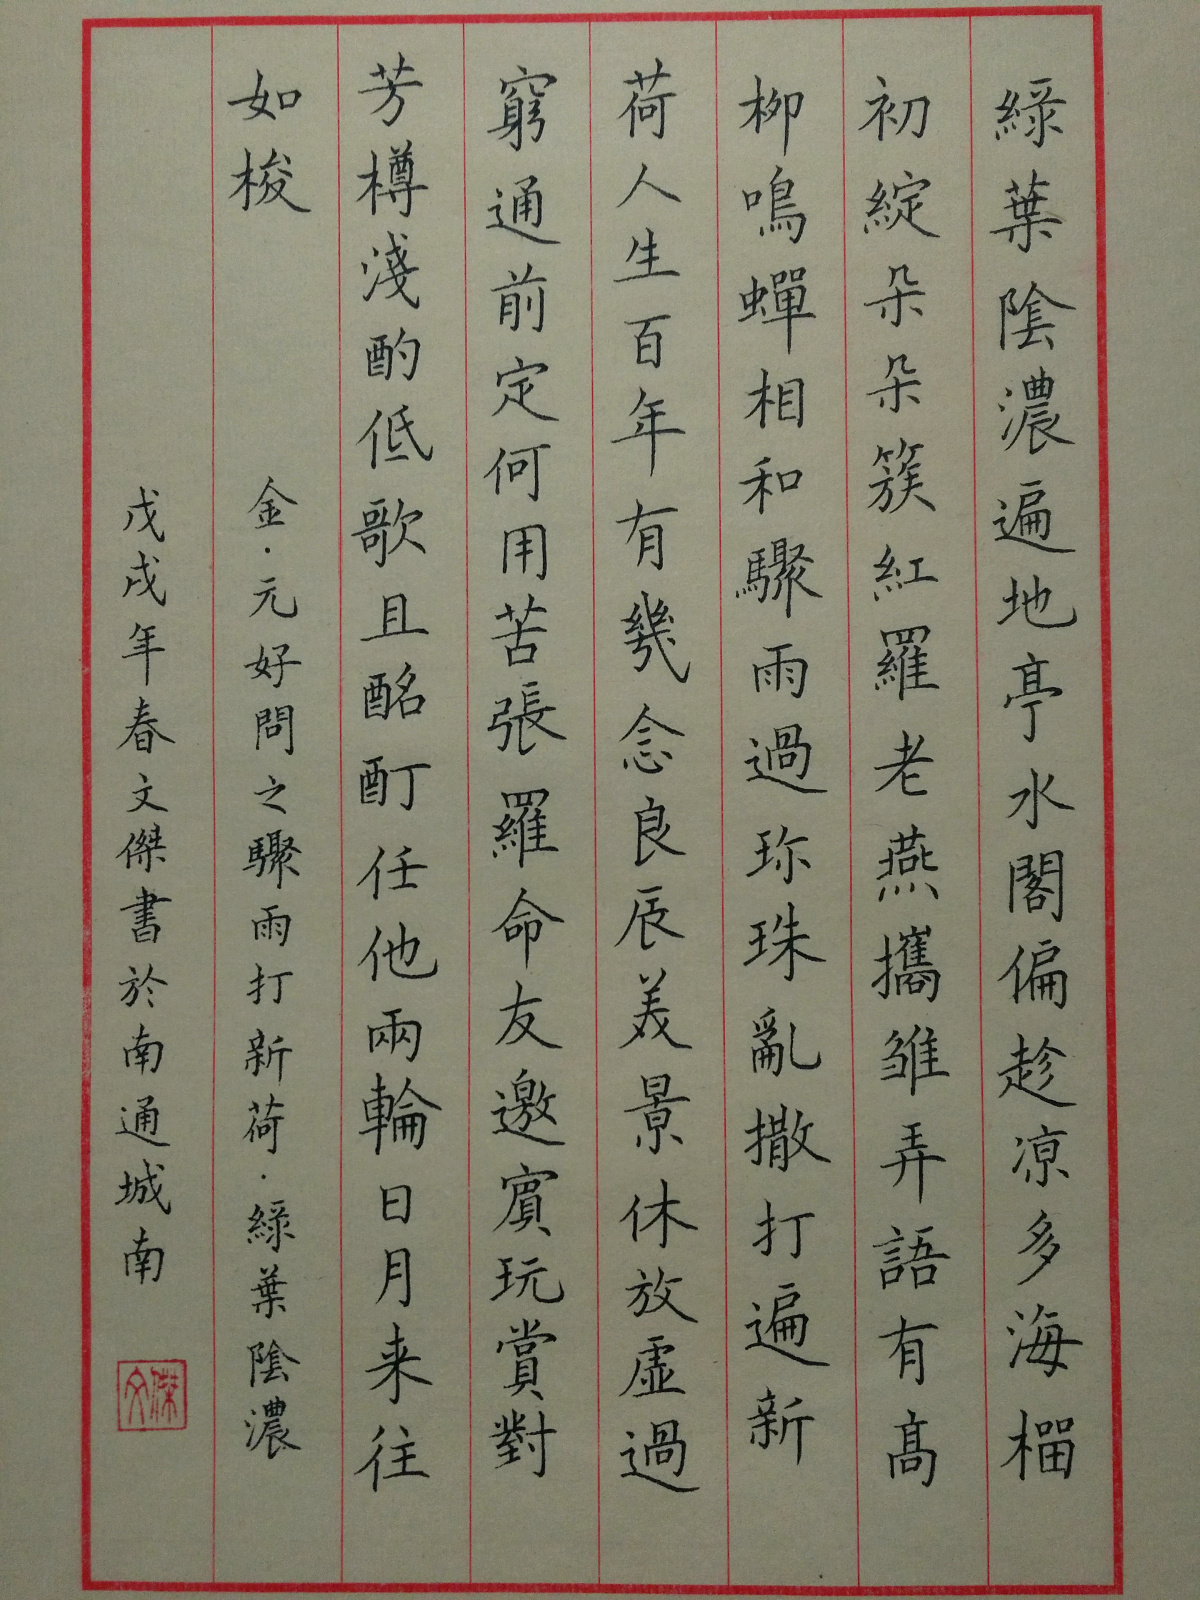 綠葉陰濃遍地亭水閣偏趁凉多海榴
初綻朵朵簇紅羅老燕攜雏弄語有髙
柳鳴蟬相和驟雨過珎珠亂撒打遍新
荷人生百年有幾念良辰美景休放虛過
窮通前定何用苦張羅命友邀賓玩賞對
芳樽淺酌低歌且酩酊任他兩輪日月来往
如梭
金·元好問之驟雨打新荷·綠葉陰濃
戊戌年春文傑書於南通城南
文傑